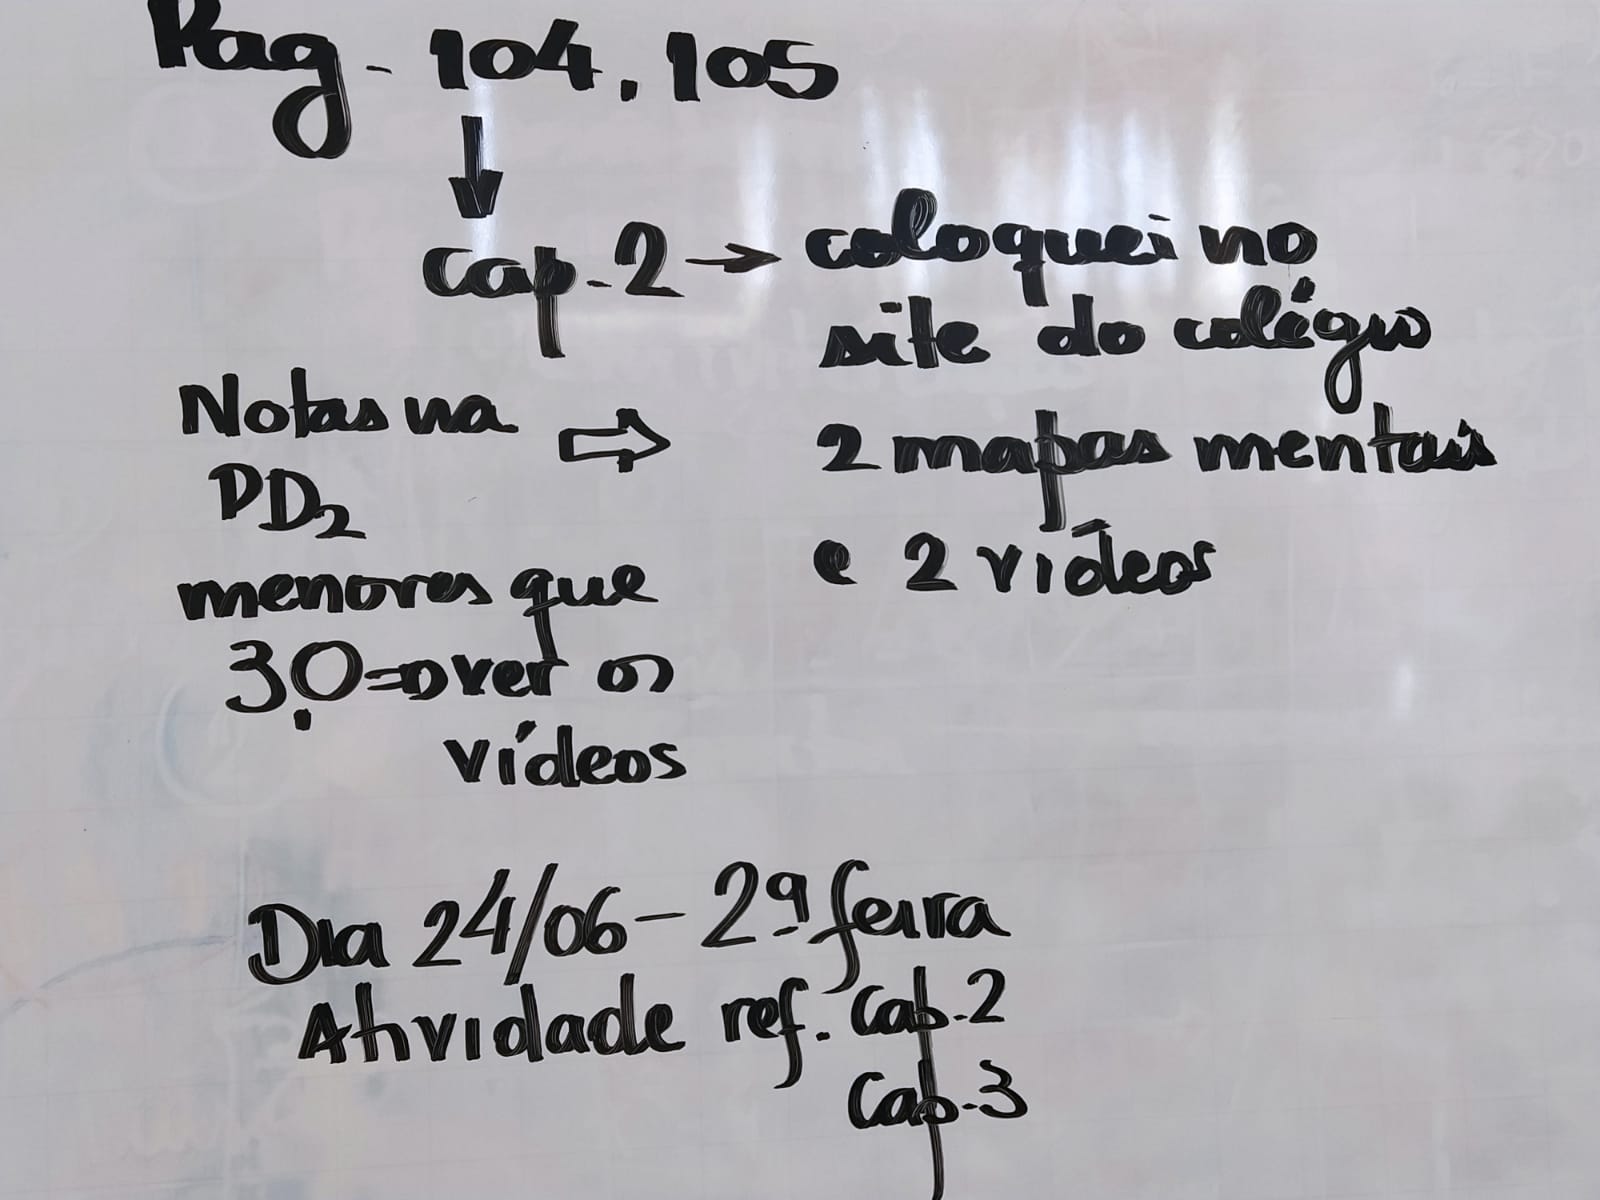 Pag - 104, 105
↓
cap. 2 → coloquei no
site do colégio
2 mapas mentais
e 2 vídeos
Notas na ⇨
PD2
menores que
3,0 ⇒ ver os
vídeos
Dia 24/06 - 2ª feira
Atividade ref. Cap. 2
Cap. 3